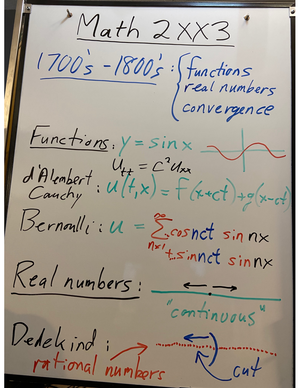 Math 2XX3
1700's - 1800's : { functions
real numbers
convergence
Functions: y = sin x
u_tt = c² u_xx
d'Alembert
Cauchy : u(t,x) = f(x+ct)+g(x-ct)
Bernoulli: u = ∑ cos nct sin nx
n=1 + sin nct sin nx
Real numbers:
"continuous"
Dedekind:
rational numbers
cut